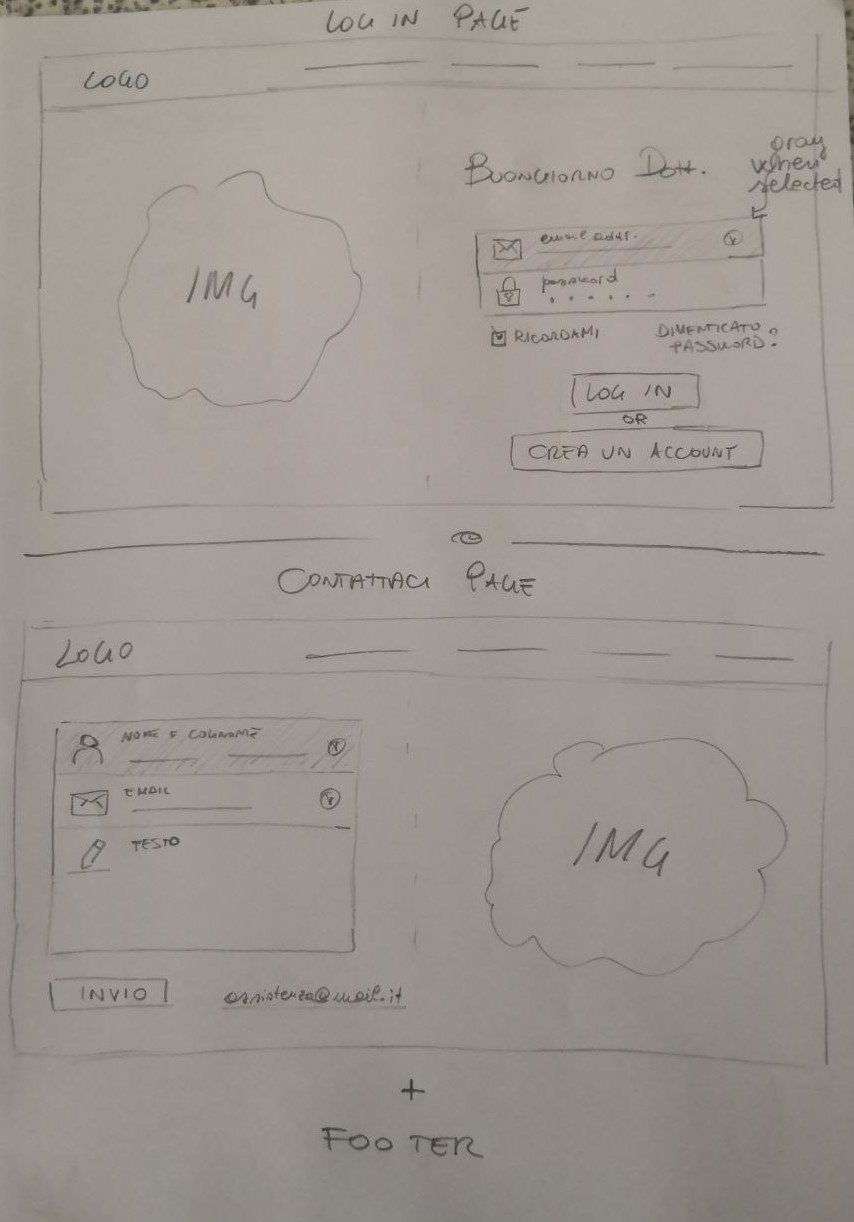 LOG IN PAGE
LOGO
BUONGIORNO Dott.
gray
when
selected
email addr.
password
RICORDAMI
DIMENTICATO
PASSWORD?
IMG
LOG IN
OR
CREA UN ACCOUNT
CONTATTACI PAGE
LOGO
NOME E COGNOME
EMAIL
TESTO
IMG
INVIO
assistenza@mail.it
+
FOOTER